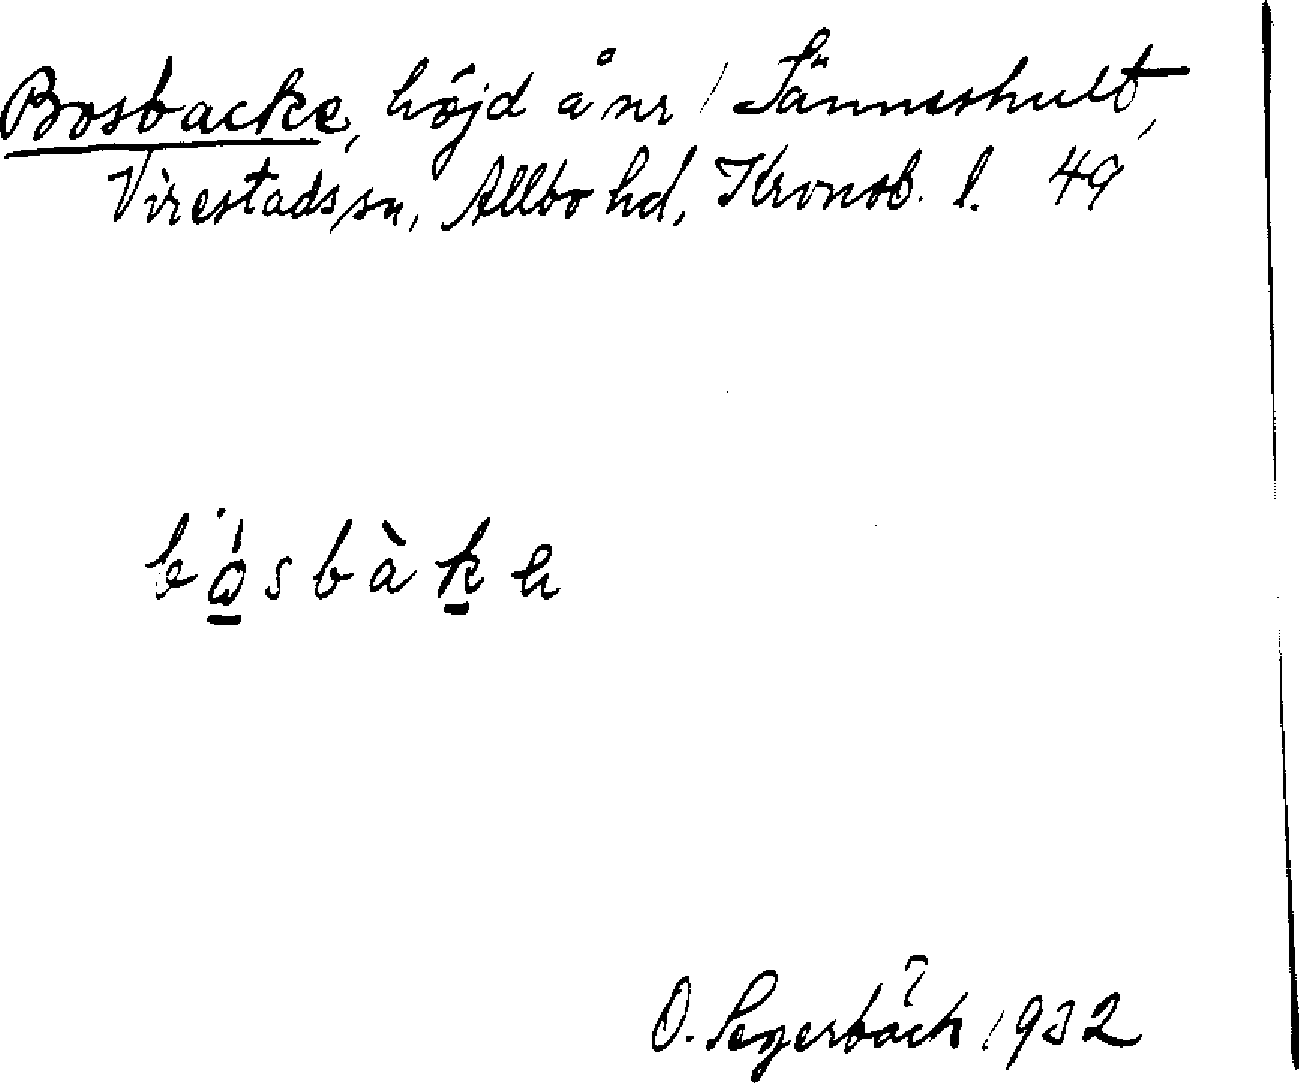 Bosbacke, höjd å nr 1 Sänneshult,
Virestads sn, Allbo hd, Kronob. l. 49
bósbàkɐ
O. Segerbäck 1932